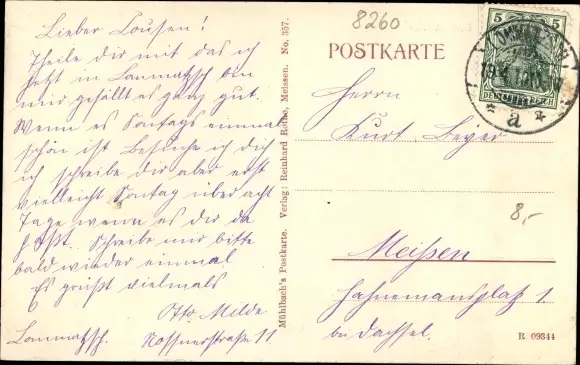 Lieber Cousen!
Theile dir mit das ich
jetzt in Lommatzsch bin
mir gefällt es ganz gut.
Wenn es Sontags einmal
schön ist Besuche ich dich
ich schreibe dir aber erst
vielleicht Sontag über acht
Tage wenn es dir da
paßt. Schreibe mir bitte
bald wieder einmal
Es grüßt vielmals
Otto Milde
Lommatzsch. Nossnerstraße 11
Mühlbach's Postkarte. Verlag: Reinhard Rothe, Meissen. No. 357.
8260
POSTKARTE
5 5
DEUTSCHES REICH
a
Herrn
Kurt Beyer
8,-
Meißen
Hahnemannsplatz 1.
bei Dachsel.
R 09344